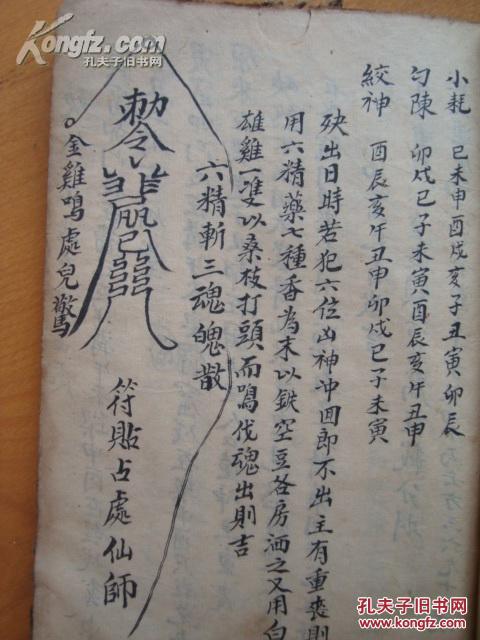 小耗 巳未申酉戌亥子丑寅卯辰
勾陳 卯戌巳子未寅酉辰亥午丑申
絞神 酉辰亥午丑申卯戌巳子未寅
殃出日時若犯六位凶神冲回即不出主有重喪則
用六精藥七種香為末以鉄空豆各房洒之又用白
雄雞一隻以桑枝打頭而鳴伐魂出則吉
六精斬三魂魄散
勅令
金雞鳴處兒驚
符貼占處仙師
Kongfz.com
孔夫子旧书网
Kongfz.com
孔夫子旧书网